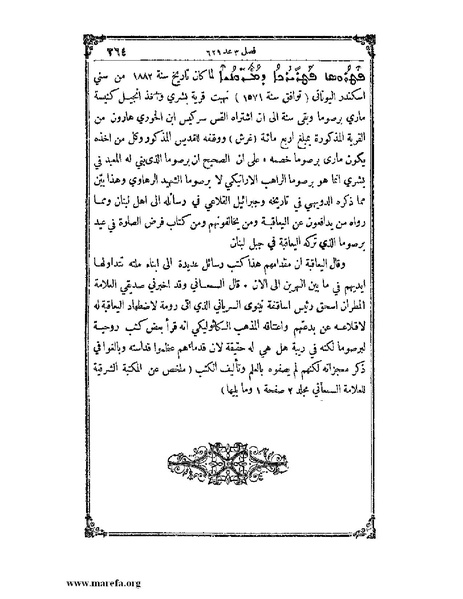 فصل ٣ عد ٦٢٩
٣٦٤
لماكان تاريخ سنة ١٨٨٢ من سني
اسكندر اليوناني ( توافق سنة ١٥٧١ ) نهبت قرية بشري وأخذ انجيل كنيسة
ماري برصوما وبقى سنة الى ان اشتراه القس سركيس ابن الخوري هارون من
القرية المذكورة بمبلغ اربع مائة (غرش) ووقفه للقديس المذكور وكل من اخذه
يكون مارى برصوما خصمه ٠ على ان الصحيح ان برصوما الذى بني له المعبد في
بشري انما هو برصوما الراهب الاراتيكي لا برصوما الشهيد الرهاوي وهذا بيّن
مما ذكره الدويهي في تاريخه وجبرائيل القلاعي في رسالته الى اهل لبنان ومما
رواه من يدافعون عن اليعاقبة ومن يخالفونهم ومن كتاب فرض الصلوة في عيد
برصوما الذي تركه اليعاقبة في جبل لبنان
وقال اليعاقبة ان متقدمهم هذا كتب رسائل عديدة الى ابناء ملته تتداولها
ايديهم في ما بين النهرين الى الان ٠ قال السمعاني وقد اخبرني صديقي العلامة
المطران اسحق رئيس اساقفة نينوى السرياني الذي اتى رومة لاضطهاد اليعاقبة له
لاقلاعه عن بدعتهم واعتناقه المذهب الكاثوليكي انه قرأ بعض كتب روحية
لبرصوما لكنه في ريبة هل هي له حقيقة لان قدماءهم عظموا قداسته وبالغوا في
ذكر معجزاته لكنهم لم يصفوه بالعلم وتأليف الكتب ( ملخص عن المكتبة الشرقية
للعلامة السمعاني مجلد ٢ صفحة ١ وما يليها )
www.marefa.org